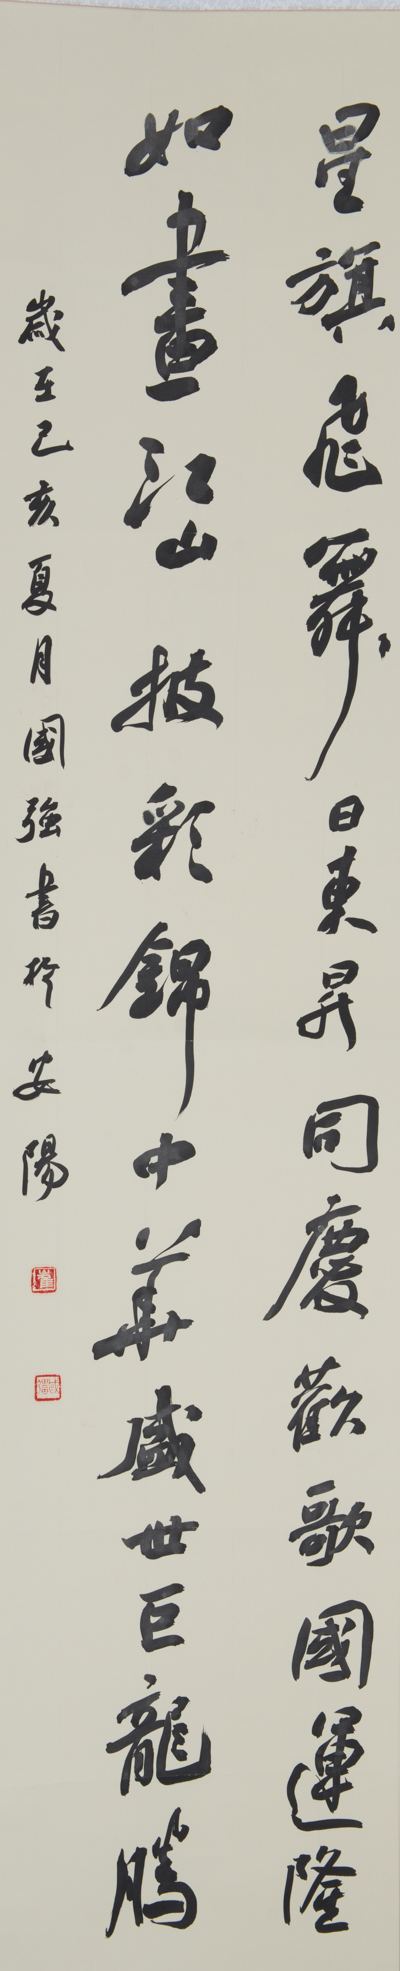 星旗飛舞日東昇同慶歡歌國運隆
如畫江山披彩錦中華盛世巨龍騰
歲在己亥夏月國強書於安陽